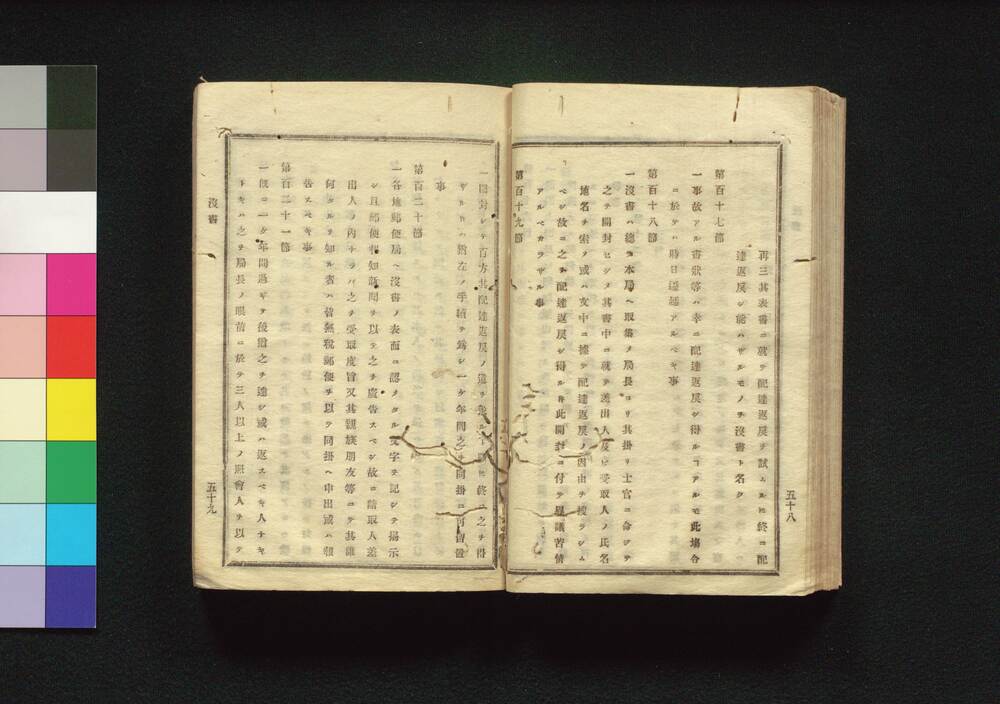 再三其表書ニ就テ配達返戻ヲ試ムルニ終ニ配
達返戻シ能ハザルモノヲ沒書ト名ク
第百十七節
一事故アル書狀等ハ幸ニ配達返戻シ得ルコアルモ此場合
ニ於テハ時日遲延アルベキ事
第百十八節
一沒書ハ總テ本局ヘ取集メ局長ヨリ其掛リ士官ニ命ジテ
之ヲ開封セシメ其書中ニ就テ差出人及ビ受取人ノ氏名
地名ヲ索メ或ハ文中ニ據テ配達返戻ノ因由ヲ搜ラシム
ベシ故ニ之ヲ配達返戻シ得ル𪜈此開封ニ付テ異議苦情
アルベカラザル事
第百十九節
五十八
一開封シテ百方其配達返戻ノ道ヲ ニ終ニ之ヲ得
ザル ハ猶左ノ手續ヲ爲シ一ケ年間之ヲ同掛ニ 留置
事
第百二十節
一各地郵便局ヘ沒書ノ表面ニ認メタル文字ヲ記シテ揭示
シ且郵便報知新聞ヲ以テ之ヲ廣告スベシ故ニ請取人差
出人ノ內ナラバ之ヲ受取度旨又其親族朋友等ニテ其誰
何タルヲ知ル者ハ皆無稅郵便ヲ以テ同掛ヘ申出或ハ報
告スベキ事
第百二十一節
一既ニ一ケ年間過ギテ後猶之ヲ達シ或ハ返スベキ人ナキ
トキハ之ヲ局長ノ眼前ニ於テ三人以上ノ照會人ヲ以テ
沒書
五十九